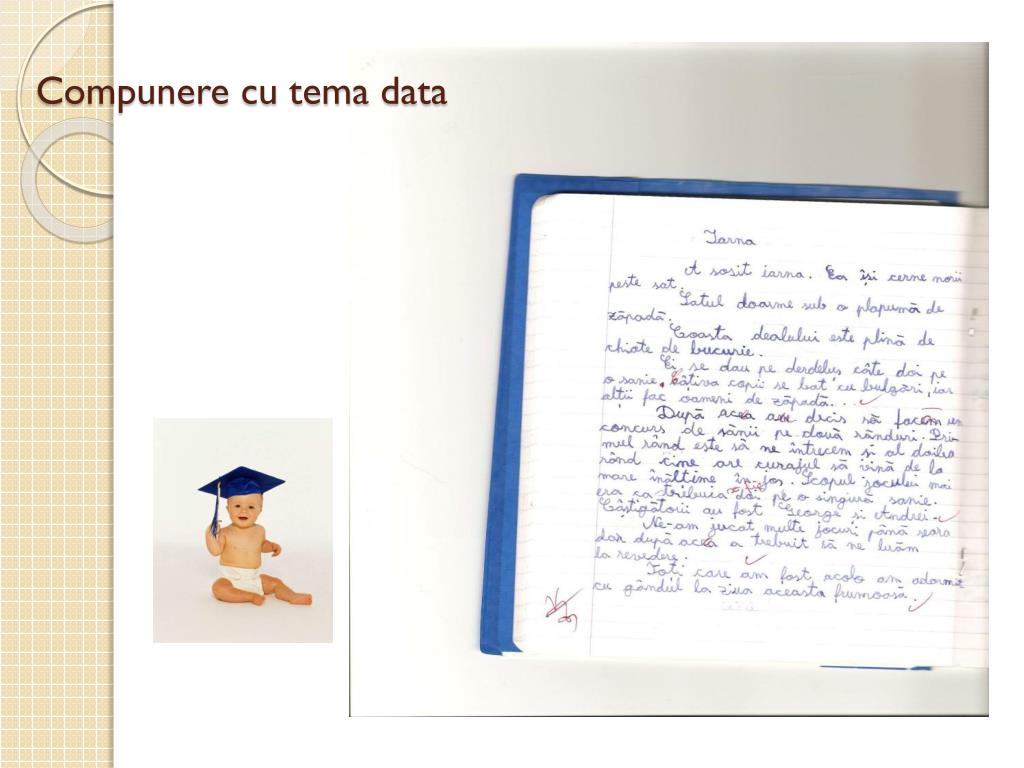 Compunere cu tema data
Iarna
A sosit iarna. Ea își cerne norii
peste sat.
Satul doarme sub o plapumă de
zăpadă.
Coasta dealului este plină de
chiote de bucurie.
Ei se dau pe derdeluș câte doi pe
o sanie. Câțiva copii se bat cu bulgări, iar
alții fac oameni de zăpadă...
După aceea am decis să facem un
concurs de sănii pe două rânduri. Pri-
mul rând este să ne întrecem și al doilea
rând cine are curajul să vină de la
mare înălțime în jos. Scopul jocului mai
era ca trebuia să fie doi pe o singură sanie.
Câștigătorii au fost George și Andrei.
Ne-am jucat multe jocuri până seara
dar după aceea a trebuit să ne luăm
la revedere.
Toți care am fost acolo am adormit
cu gândul la ziua aceasta frumoasă.